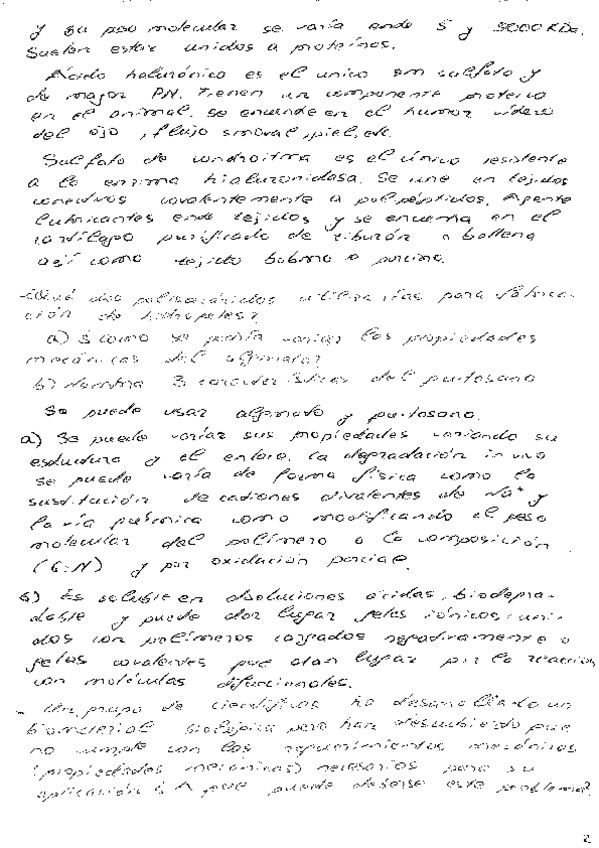 y su peso molecular se varía ende 5 y 5000 KDa.
Suelen estar unidos a proteínas.
Ácido halurónico es el unico sm sulfato y
de mayor P.M. Tienen un componente proteico
en el animal. Se encuende en el humor vídeo
del ojo, flujo smovial, piel, etc.
Sulfato de condroitina es el único resistente
a la enzima hialuronidasa. Se une en tejidos
conectivos covalentemente a polipéptidos. Agente
lubricantes ende tejidos y se encuentra en el
cartílago purificado de tiburón o ballena
así como tejido bobino o porcino.
-¿Qué dos polisacáridos utilizarías para fabrica-
ción de hidrogeles?
a) ¿ Como se podría variar las propiedades
mecánicas del alginato?
b) Nombra 3 características del quitosano
Se puede usar alginato y quitosano.
a) Se puede variar sus propiedades variando su
estructura y el enlace. La degradación in vivo
se puede varía de forma física como la
sustitución de cationes divalentes de Na+ y
la vía química como modificando el peso
molecular del polímero o la composición
(G:M) y por oxidación parcial.
b) Es soluble en disoluciones ácidas, biodegra-
dable y puede dar lugar geles iónicos, uni-
dos con polímeros cargados negativamente o
geles covalentes que dan lugar por la reacción
con moléculas difuncionales.
- Un grupo de científicos ha desarrollado un
biomaterial biológico pero han descubierto que
no cumple con los requerimientos mecánicos
(propiedades mecánicas) necesarios para su
aplicación ¿ A que puede deberse este problema?
2